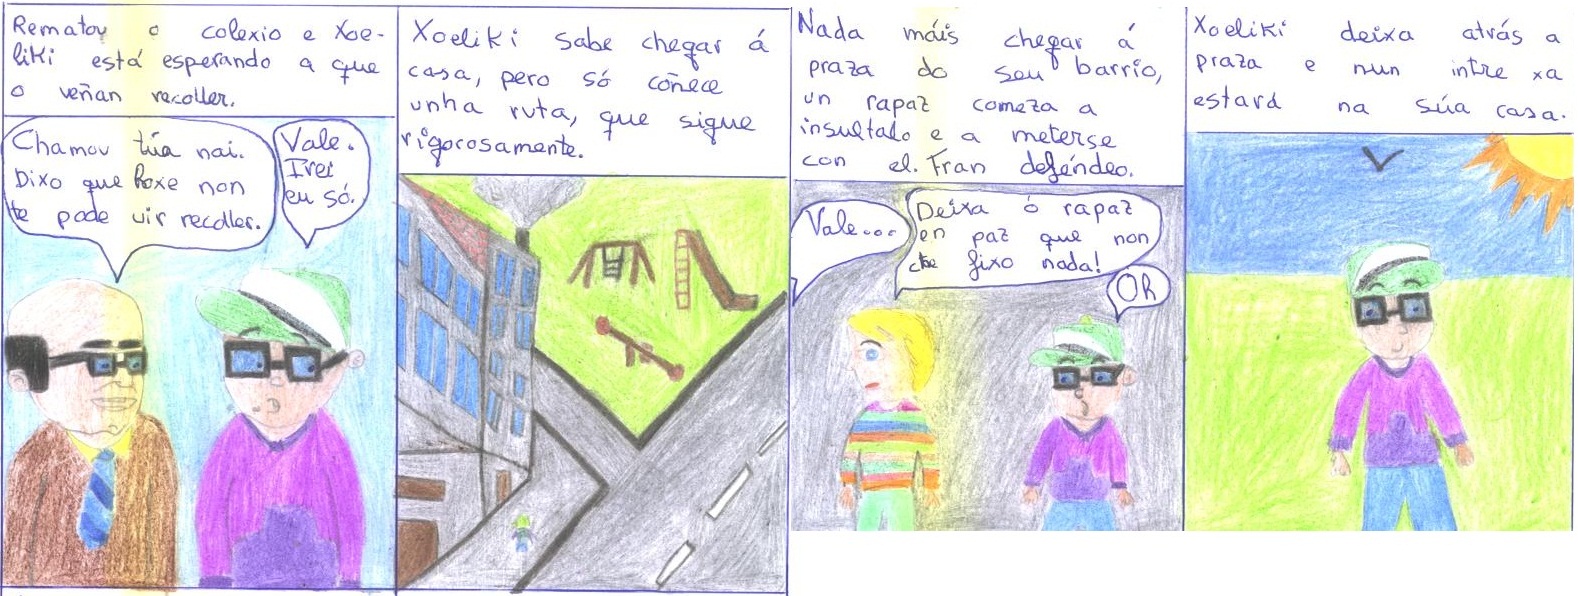 Rematou o colexio e Xoe-
liki está esperando a que
o veñan recoller.
Chamou túa nai.
Dixo que hoxe non
te pode vir recoller.
Vale.
Irei
eu só.
Xoeliki sabe chegar á
casa, pero só coñece
unha ruta, que sigue
rigorosamente.
Nada máis chegar á
praza do seu barrio,
un rapaz comeza a
insultalo e a meterse
con el. Fran deféndeo.
Vale...
Deixa ó rapaz
en paz que non
che fixo nada!
Oh
Xoeliki deixa atrás a
praza e nun intre xa
estará na súa casa.